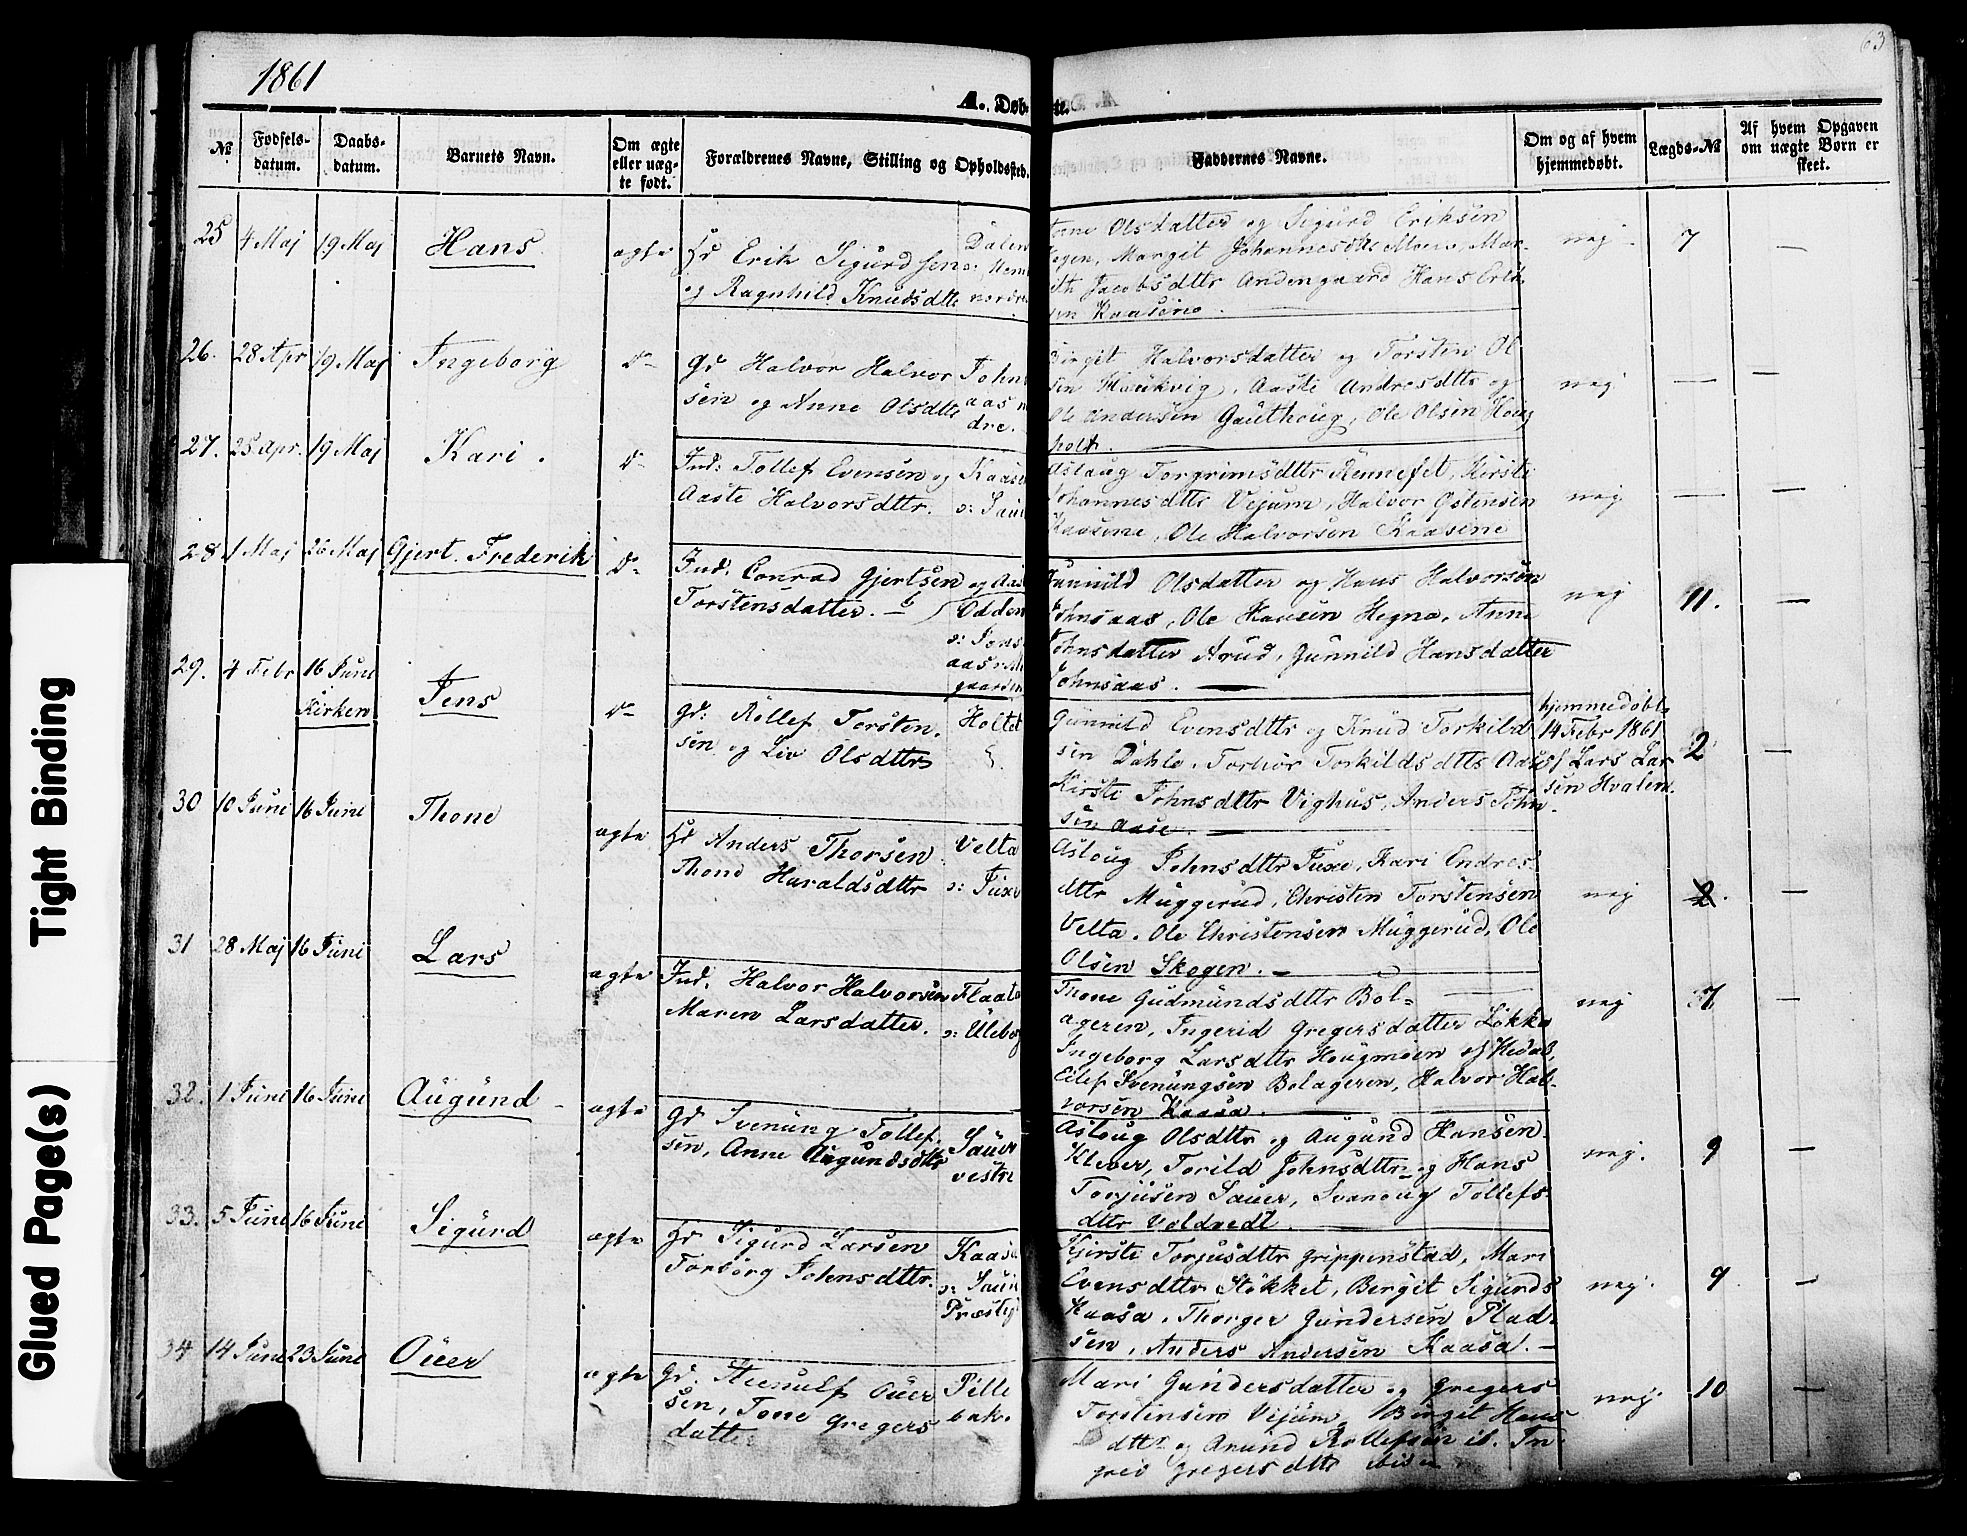 1861
63
A. Døb
te.
№
Fødsels-
datum.
Daabs-
datum.
Barnets Navn.
Om ægte
eller uæg-
te født.
Forældrenes Navne, Stilling og Opholdssted.
Faddernes Navne.
Om og af hvem
hjemmedøbt.
Lægds-№
Af hvem Opgaven
om uægte Børn er
skeet.
25 4 Maj 19 Maj Hans ægte
Erik Sigurdsen
og Ragnhild Knudsdtr
Dalen
nordre
Olsdatter og Sigurd Eriksen
Margit Johannesdtr Moen, Mar-
Jacobsdtr Andengaard Hans Erik
Kaasene
nej 7 —
26. 28 Apr 19 Maj Ingeborg Do
Gd Halvor Halvor
sen og Anne Olsdtr
John
aas n
dre.
Birgit Halvorsdatter og Torsten Ol
sen, Aaste Andresdtr og
Ole Andersen Gauthoug, Ole Olsen Houg
holt.
nej — —
27. 25 Apr. 19 Maj Kari. Do
Ind: Tollef Evensen og
Aaste Halvorsdttr.
Kaase
s: Saue
Aslaug Torgrimsdttr Rennefet, Kirsti
Johannesdttr Vejum, Halvor Østensen
Kaasene, Ole Halvorsen Kaasene
nej — —
28 1 Maj 26 Maj Gjert. Frederik Do
Ind: Conrad Gjertsen og Aas
Torstensdatter.
Odden
s: Jons
aas
gaarden
Gunnild Olsdatter og Hans Halvorsen
Johnsaas, Ole Hansen Hegna, Anne
Johnsdatter Arud, Gunnild Hansdatter
Johnsaas.
nej 11. —
29. 4 Febr 16 Juni
Kirken
Jens Do
Gd: Rollef Torsten.
sen og Liv Olsdttr
Holtet
Gunnild Evensdttr og Knud Torkild
sen Dahle. Torbor Torkildsdttr Aase
Kirsti Johnsdttr Vighus, Anders John-
sen Aase.
hjemmedøbt
14 Febr 1861
af Lars Lar
sen Hvalen.
2 —
30 10 Juni 16 Juni Thone ægte
Anders Thorsen
Thone Haraldsdttr
Velta
s: Juxe
Asloug Johnsdttr Juxe, Kari Endres
dttr Muggerud, Christen Torstensen
Velta. Ole Christensen Muggerud, Ole
Olsen Skogen.
nej 2. —
31 28 Maj 16 Juni Lars ægte
Ind. Halvor Halvorsen
Maren Larsdatter.
Flaata
s: Uleberg
Thone Gudmundsdttr Bol-
ageren, Ingerid Gregersdatter Løkka
Ingeborg Larsdttr Hougmoen af Hedal,
Eilef Svenungsen Bolageren, Halvor Hal-
vorsen Kaasa.
nej 7 —
32. 1 Juni 16 Juni Augund ægte
Gd Svenung Tollef
sen, Anne Augundsdttr
Sauer
vestre
Asloug Olsdttr og Augund Hansen
Klever, Torild Johnsdttr og Hans
Torjusen Sauer, Svanoug Tollefs
dttr Valdvedt
nej. 9 —
33. 5 Juni 16 Juni Sigurd ægte
Sigurd Larsen
Torborg Johnsdttr.
Kaasa
s: Saue
Præstej
Kjirsti Torjusdttr Grippenstad, Mari
Evensdttr Støkket, Bergit Sigurds
Kaasa, Thorger Gundersen Plad-
sen, Anders Andersen Kaasa. —
nej. 9 —
34 14 Juni 23 Juni Ouer ægte
Gd. Steenulf Ouer
sen, Tone Gregers
datter
Pelle
bak.
Mari Gundersdatter og Gregers
Torstensen Vejum, Birgit Hans
dttr og Anund Rollefsen, In
Gregersdttr
nej. 10 —
Tight Binding
Glued Page(s)